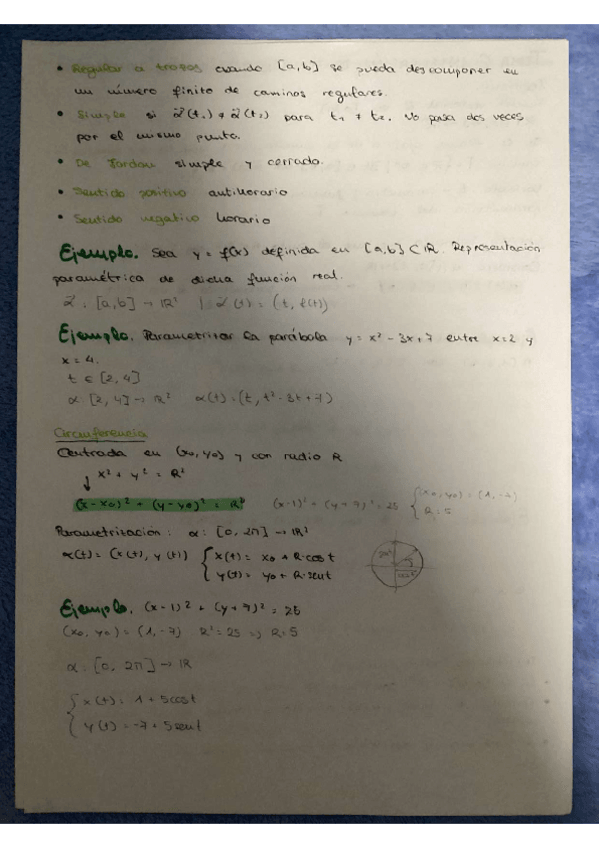 • Regular a trozos cuando [a,b] se pueda descomponer en
un número finito de caminos regulares.
• Simple si α⃗(t₁) ≠ α⃗(t₂) para t₁ ≠ t₂. No pasa dos veces
por el mismo punto.
• De Jordan simple y cerrado.
• Sentido positivo antihorario
• Sentido negativo horario
Ejemplo. Sea y = f(x) definida en [a,b] ⊂ ℝ. Representación
paramétrica de dicha función real.
α⃗ : [a,b] → ℝ² | α⃗(t) = (t, f(t))
Ejemplo. Parametrizar la parábola y = x² - 3x + 7 entre x=2 y
x = 4.
t ∈ [2,4]
α: [2,4] → ℝ² α(t) = (t, t² - 3t + 7)
Circunferencia
Centrada en (x₀, y₀) y con radio R
↓ x² + y² = R²
(x - x₀)² + (y - y₀)² = R² (x-1)² + (y+7)² = 25 { (x₀, y₀) = (1, -7)
R = 5
Parametrización: α: [0, 2π] → ℝ²
α(t) = (x(t), y(t)) { x(t) = x₀ + R·cos t
y(t) = y₀ + R·sen t
Ejemplo. (x-1)² + (y+7)² = 25
(x₀, y₀) = (1, -7) R² = 25 => R = 5
α: [0, 2π] → ℝ
{ x(t) = 1 + 5cos t
y(t) = -7 + 5sen t